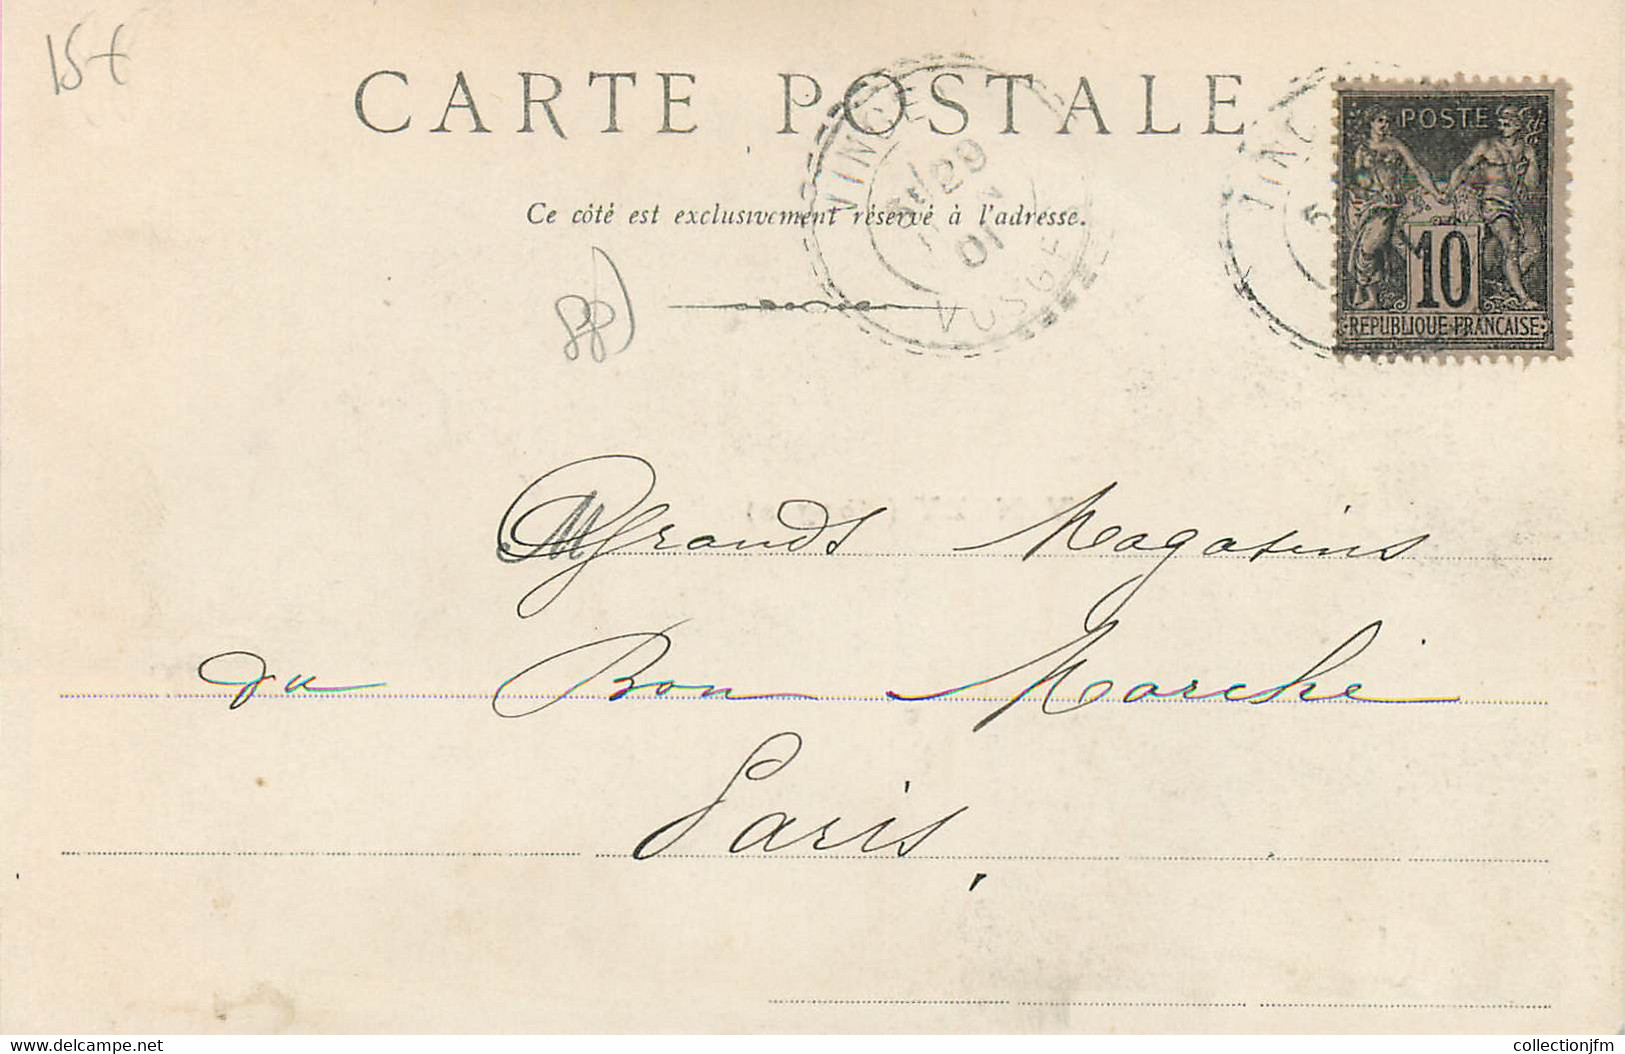 15€
CARTE POSTALE
Ce côté est exclusivement réservé à l'adresse.
VINCE
29
01
VOSGE
POSTE
10
REPUBLIQUE FRANCAISE
M Grands Magasins
du Bon Marche
Paris.
www.delcampe.net
collectionjfm